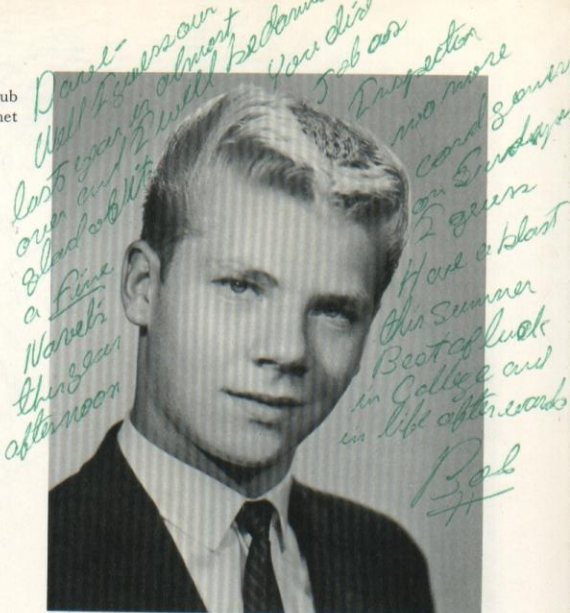 ub
net
Darel-
Well I guess our
last year is almost
over and I will be damn
glad of it. You did
a Fine Job as
Navel Inspector
this year no more
afternoon card games
on Sundays
I guess
Have a blast
this Summer
Best of luck
in College and
in life afterwards
Bob